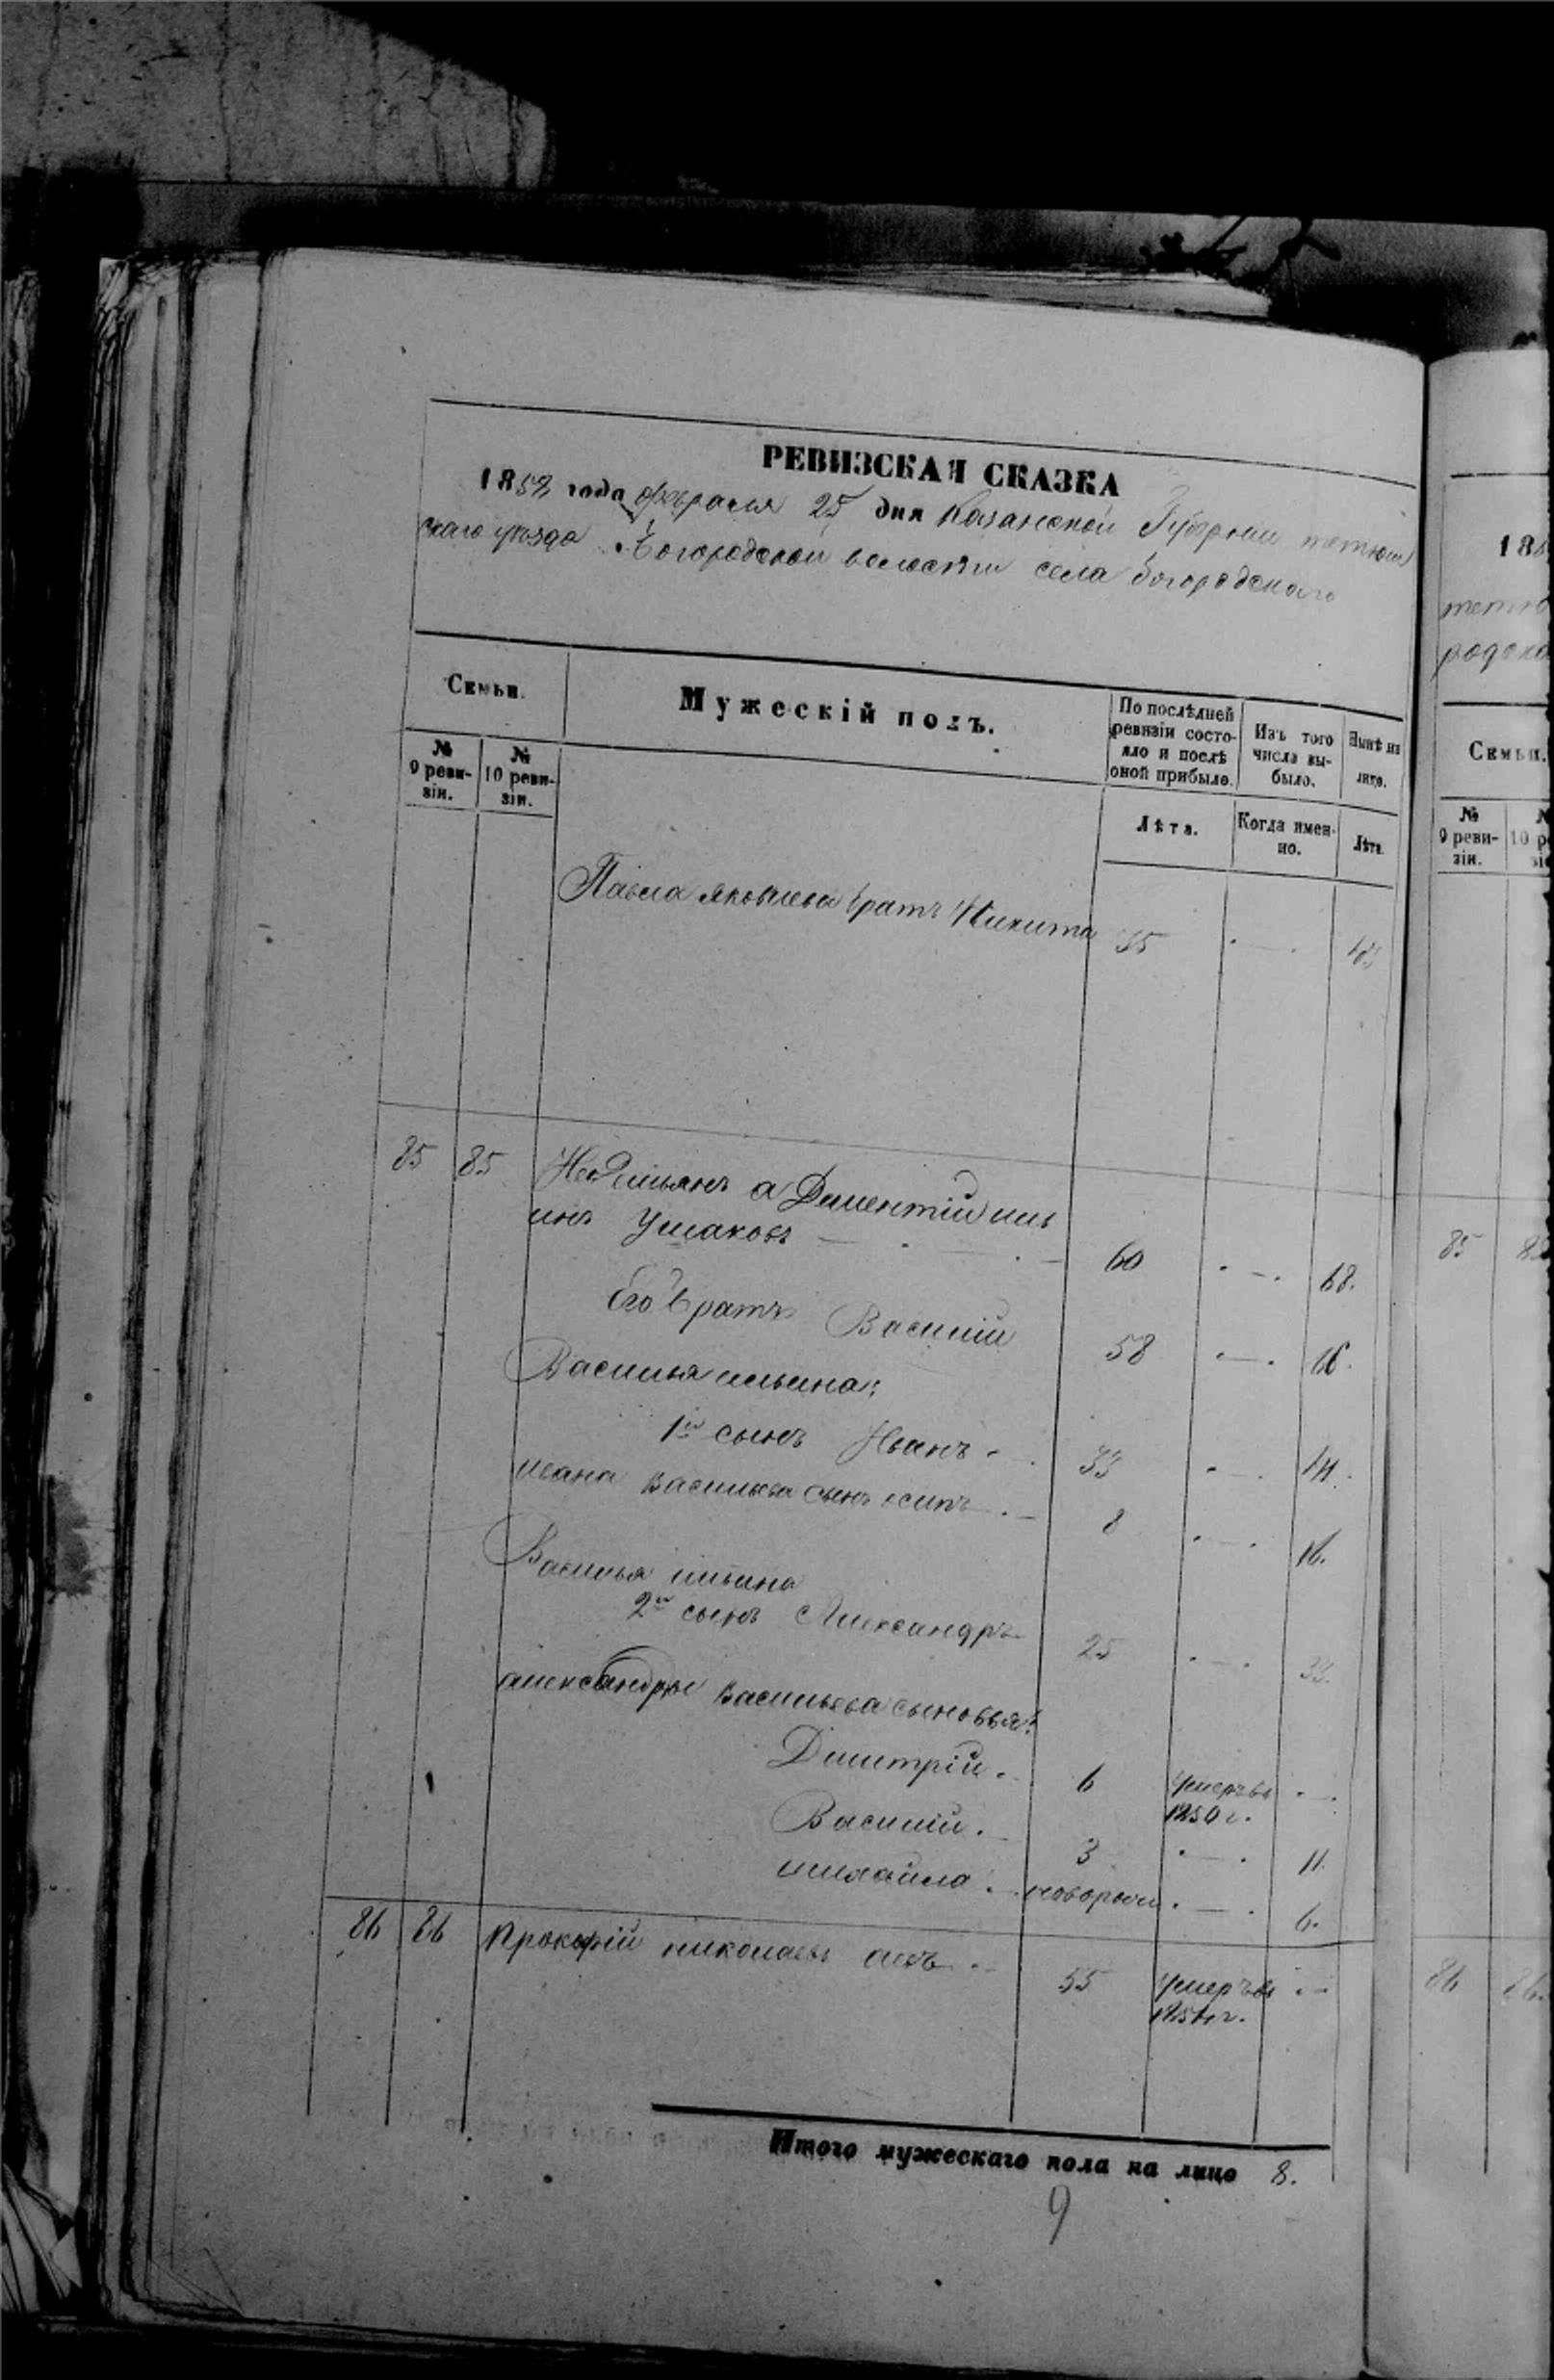 РЕВИЗСКАЯ СКАЗКА
1858 года февраля 25 дня Казанской Губернии тетюш
скаго уѣзда Богородской волости села Богородскаго
Семьи.
Мужескій полъ.
По послѣдней ревизіи состояло и послѣ оной прибыло.
Изъ того числа выбыло.
Нынѣ на лицо.
№ 9 ревизіи.
№ 10 ревизіи.
Лѣта.
Когда именно.
Лѣта.
Павла яковлева братъ Никита 35 43
85 85 Не Емильянъ а Дементій иль
инъ Ушаковъ 60 68.
Его братъ Василій 58 66.
Василья ильина:
1й сынъ Иванъ 33 41.
ивана Васильева сынъ осипъ 8 16.
Василья ильина
2й сынъ Александръ 25 33.
александры Васильева сыновья:
Димитрій. 6 умеръ въ
1850 г.
Василій. 3 11.
михайла. новорож 6.
86 86 Прокофій николаевъ 55 умеръ въ
1854 г.
Итого мужескаго пола на лицо 8.
9
186
тетю
родско
Семьи.
№ 9 ревизіи.
85
86 86.